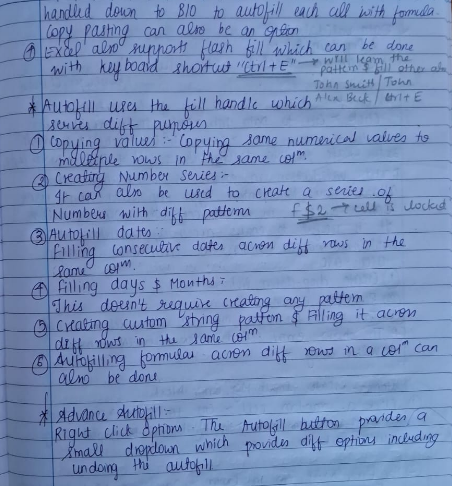 handled down to B10 to autofill each cell with formula.
Copy pasting can also be an option
Excel also supports flash fill which can be done
with keyboard shortcut "Ctrl+E" → will learn the
pattern & fill other
John Smith / John
Alen Beck / Ctrl+E
* Autofill uses the fill handle which
serves diff purposes
① Copying values :- Copying same numerical values to
multiple rows in the same colm.
② Creating Number series :-
It can also be used to create a series of
Numbers with diff pattern F$2 → cell is locked
③ Autofill dates :
Filling consecutive dates across diff rows in the
same colm.
④ Filling days & Months :
This doesn't require creating any pattern
⑤ Creating custom string pattern & Filling it across
diff rows in the same colm
⑥ Autofilling formulas across diff rows in a colm can
also be done
* Advance Autofill :-
Right click options. The Autofill button provides a
small dropdown which provides diff options including
undoing the autofill